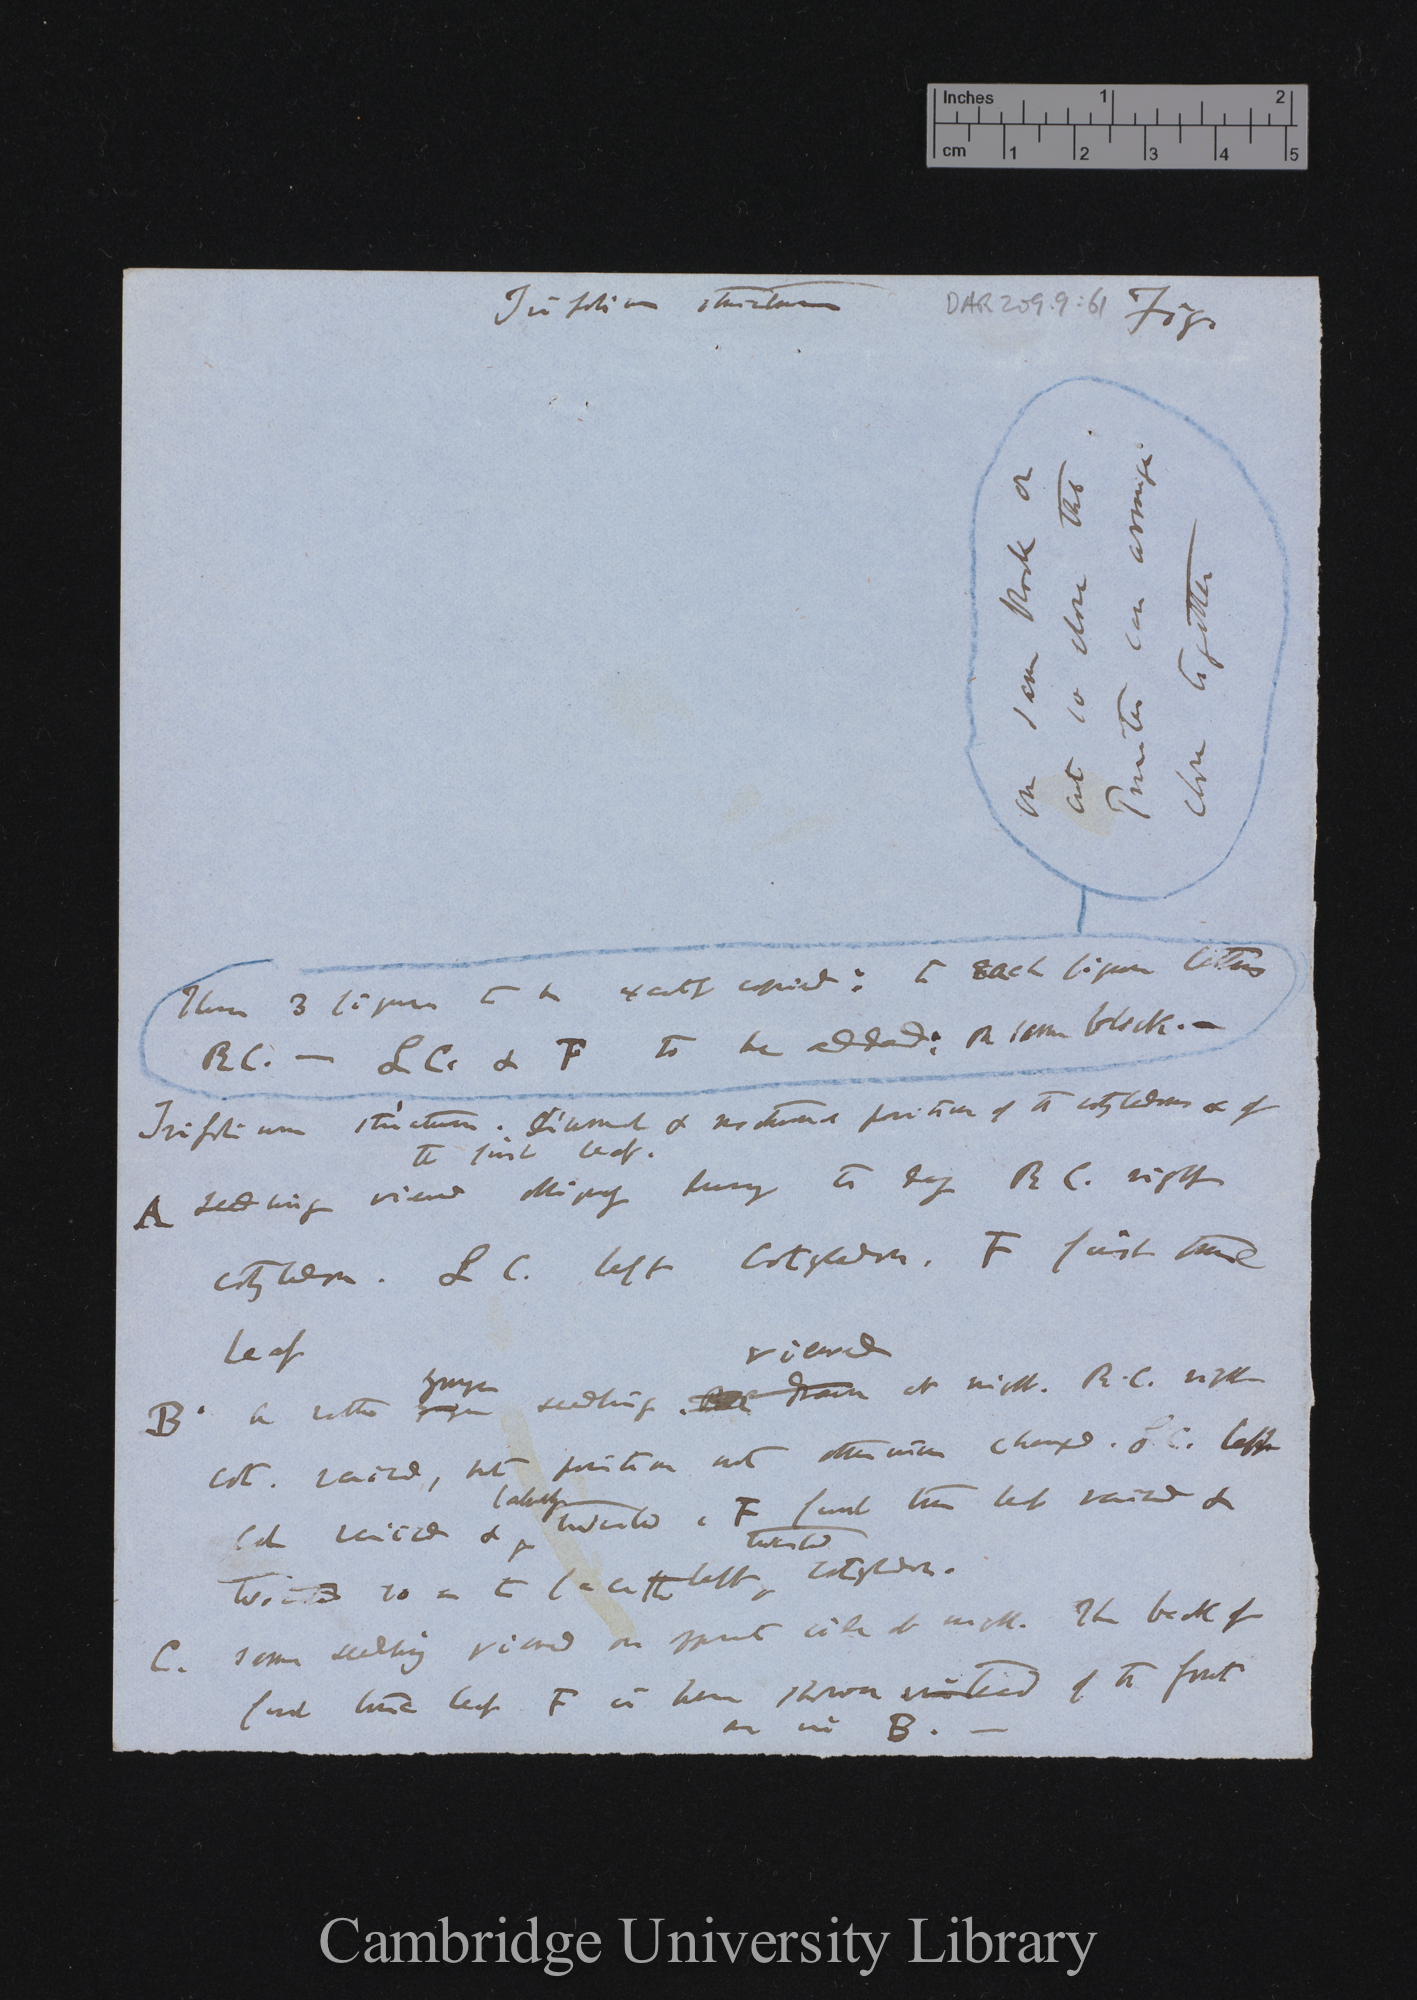 Inches 1 2
cm 1 2 3 4 5
Trifolium strictum DAR 209.9:61 Fig.
on same block or
cut so close that
Printer can arrange
close together
These 3 figures to be exactly copied: to each figure letters
R C. — L C. & F to be added: on same block.—
Trifolium strictum. Diurnal & nocturnal position of the cotyledons & of
the first leaf.
A Seedling viewed obliquely during the day R C. right
cotyledon. L C. left cotyledon. F first true
leaf
younger viewed
B. A rather younger seedling. drawn at night. R.C. right
cot. raised, but position not otherwise changed. L.C. left
laterally
cot raised & twisted. F first true leaf raised &
twisted
twisted so as to face the left cotyledon.
C. Same seedling viewed on opposite side at night. The back of
first true leaf F is here shown instead of the front
as in B. —
Cambridge University Library